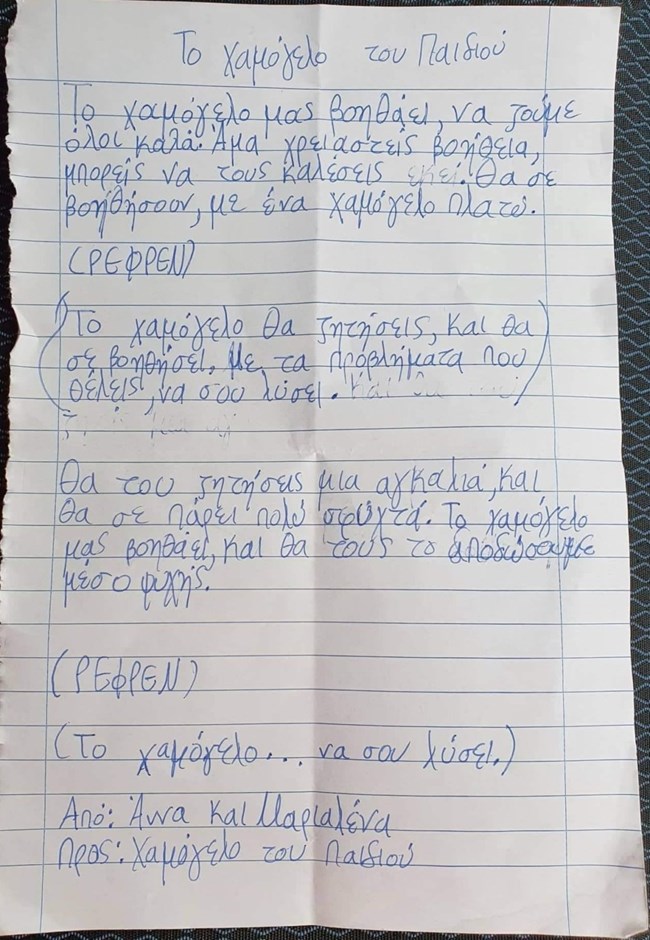 Το χαμόγελο του Παιδιού
Το χαμόγελο μας βοηθάει, να ζούμε
όλοι καλά. Άμα χρειαστείς βοήθεια,
μπορείς να τους καλέσεις εκεί. Θα σε
βοηθήσουν, με ένα χαμόγελο πλατύ.
(ΡΕΦΡΕΝ)
(Το χαμόγελο θα ζητήσεις, και θα
σε βοηθήσει. Με τα προβλήματα που
θέλεις, να σου λύσει.)
Θα του ζητήσεις μια αγκαλιά, και
θα σε πάρει πολύ σφυχτά. Το χαμόγελο
μας βοηθάει, και θα τους το αποδώσουμε
μέσο φχής.
(ΡΕΦΡΕΝ)
(Το χαμόγελο... να σου λύσει.)
Από: Άννα και Μαριαλένα
Προς: Χαμόγελο του Παιδιού